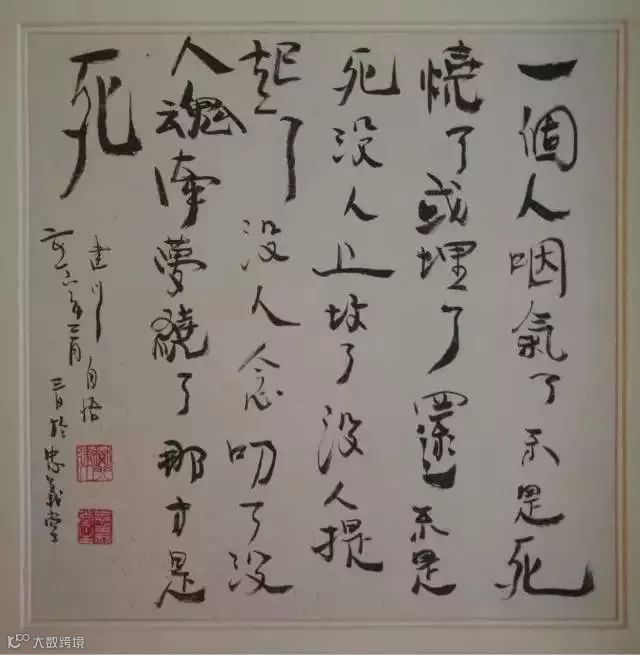 一個人咽氣了不是死
燒了或埋了還不是
死没人上坟了没人提
起了没人念叨了没
人魂牽夢繞了那才是
死
建川自悟
三日於忠義堂
大数跨境